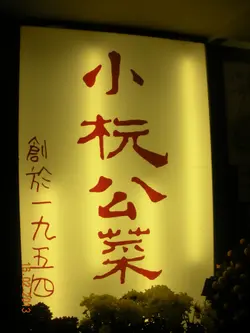 小杬公菜
創於一九五四